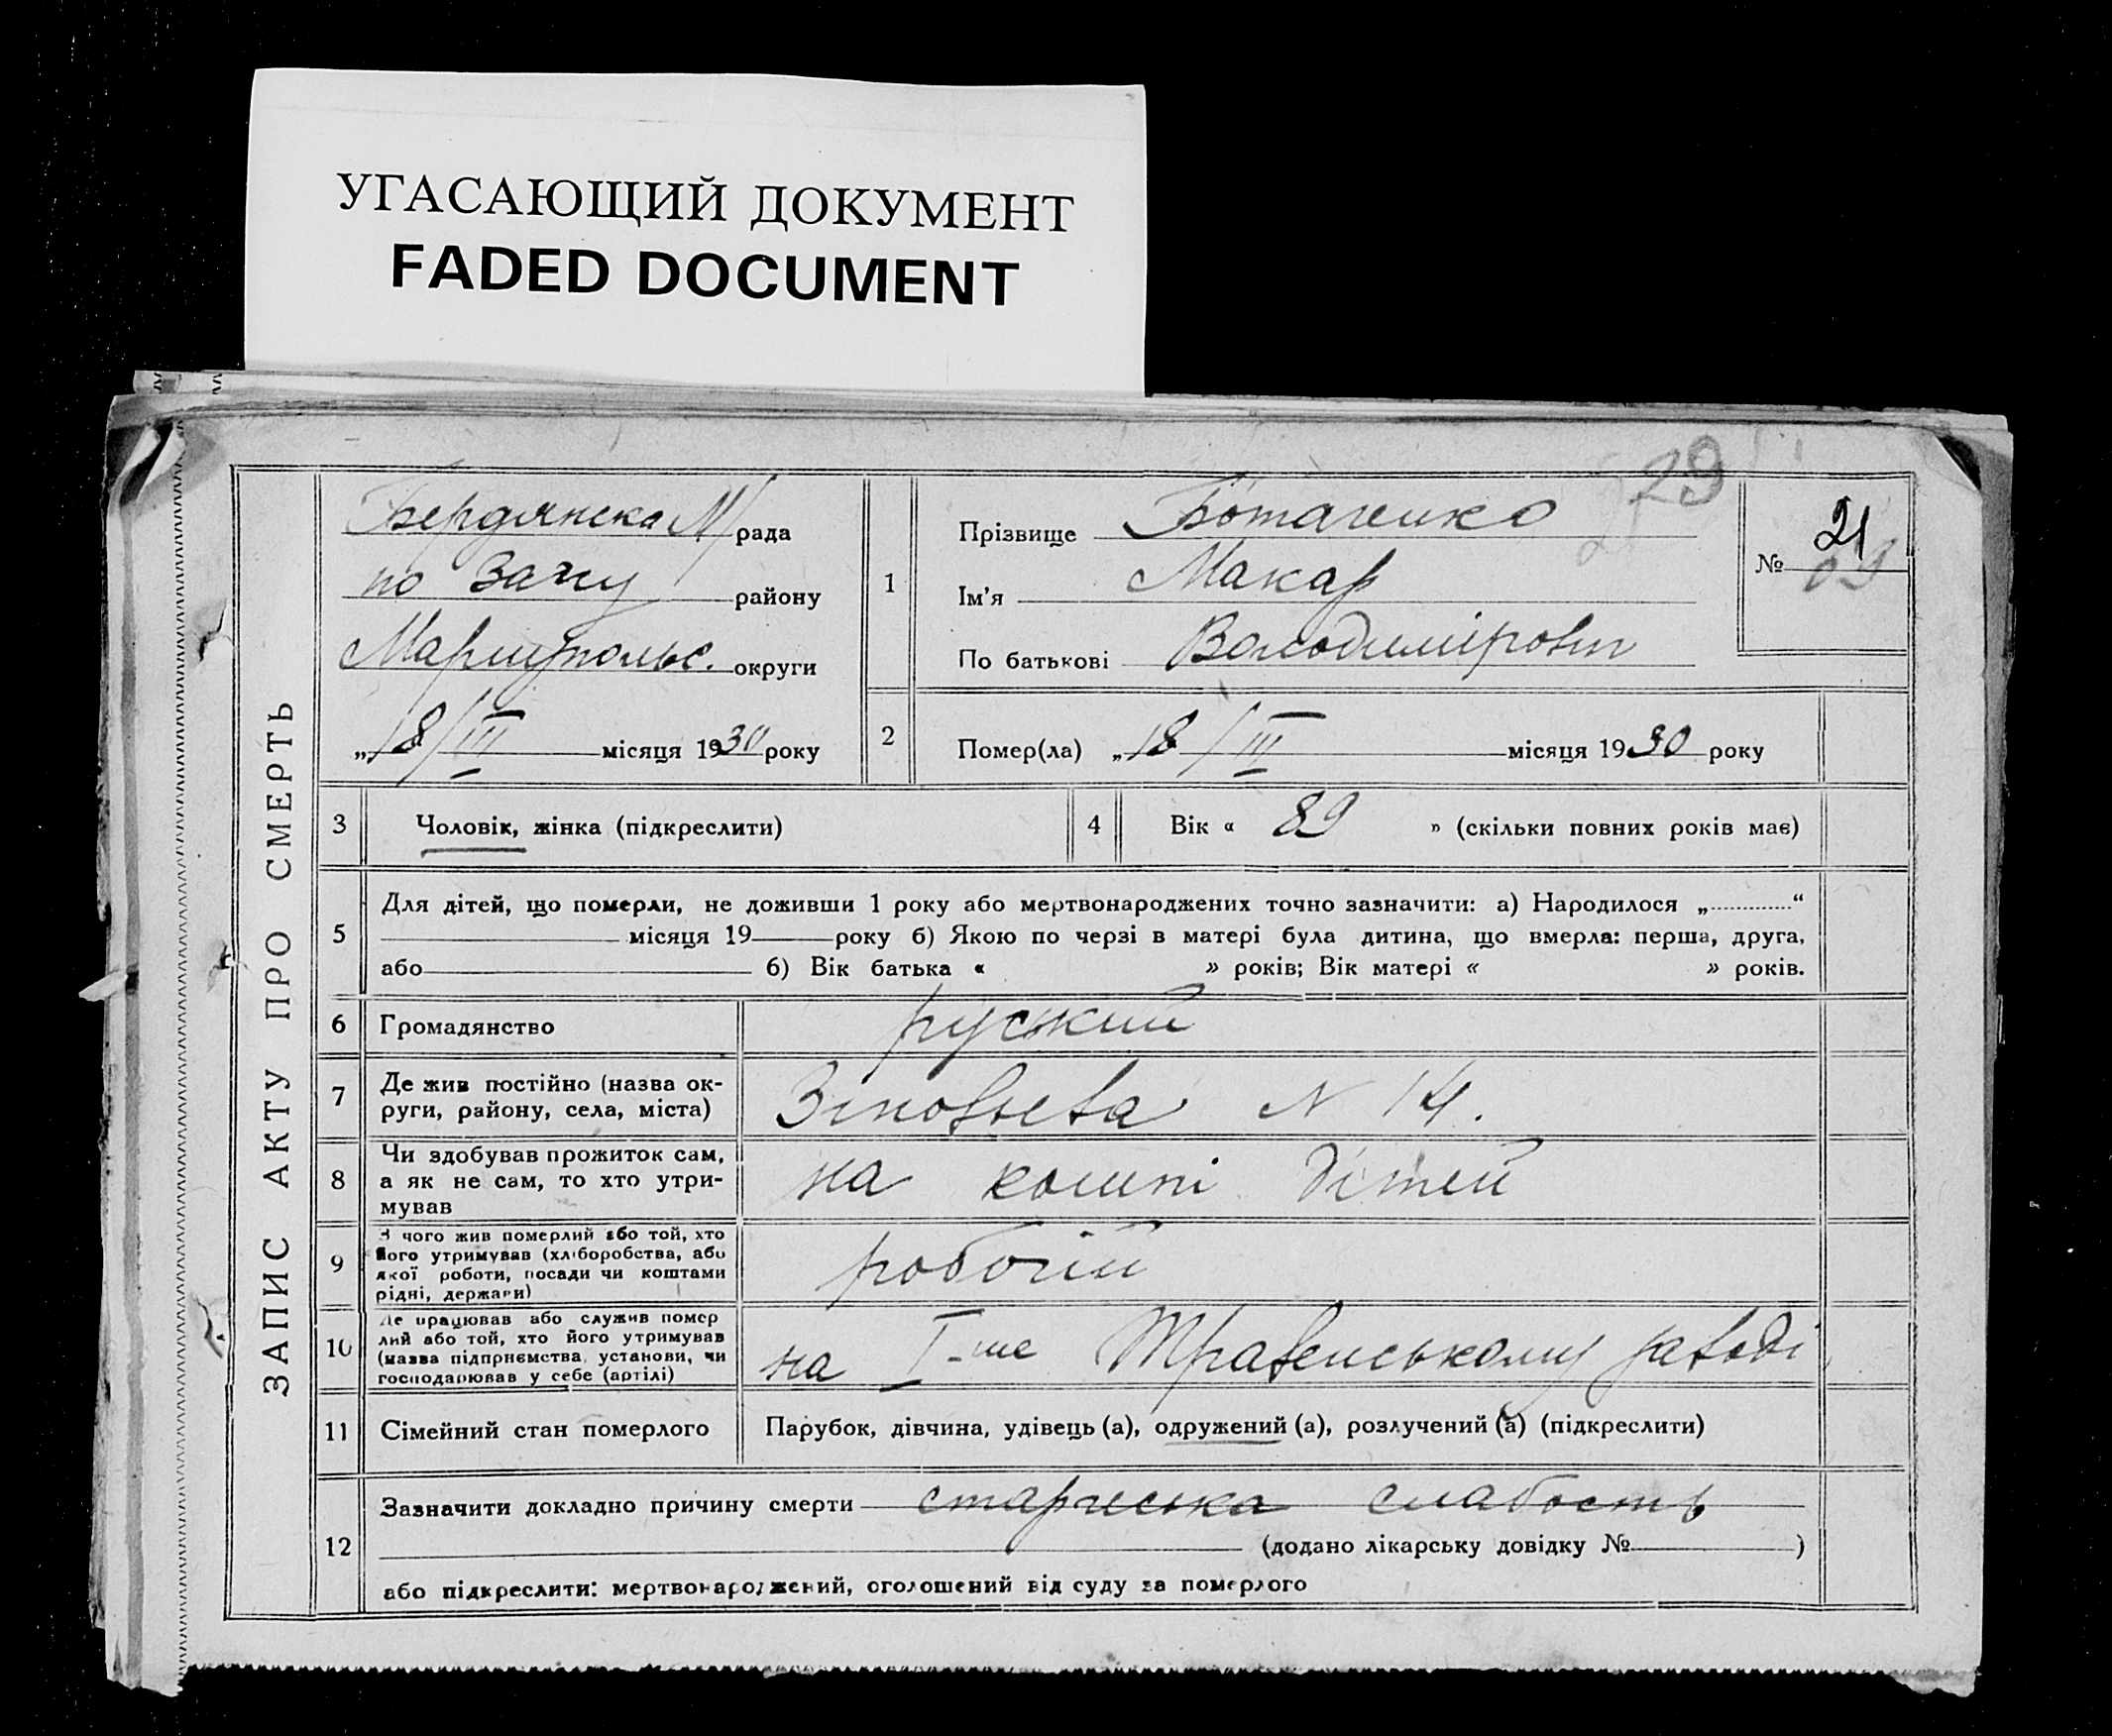 УГАСАЮЩИЙ ДОКУМЕНТ
FADED DOCUMENT
29
ЗАПИС АКТУ ПРО СМЕРТЬ
Бердянска М/рада
по Загсу району
Маріупольс. округи
„18/III місяця 1930 року
1
Прізвище Ботаченко
Ім'я Макар
По батькові Володимірович
№ 21
2
Помер(ла) „18/III місяця 1930 року
3 Чоловік, жінка (підкреслити)
4 Вік « 89 » (скільки повних років має)
5
Для дітей, що померли, не доживши 1 року або мертвонароджених точно зазначити: а) Народилося „ “
місяця 19 року б) Якою по черзі в матері була дитина, що вмерла: перша, друга,
або б) Вік батька « » років; Вік матері « » років.
6 Громадянство руський
7 Де жив постійно (назва ок-
руги, району, села, міста)
Зіновьева N 14.
8 Чи здобував прожиток сам,
а як не сам, то хто утри-
мував
на кошті дітей
9 З чого жив померлий або той, хто
його утримував (хліборобства, або
якої роботи, посади чи коштами
рідні, держави)
робочій
10 Де працював або служив помер
лий або той, хто його утримував
(назва підприємства, установи, чи
господарював у себе (артілі)
на I-ше Травенському заводі
11 Сімейний стан померлого
Парубок, дівчина, удівець (а), одружений (а), розлучений (а) (підкреслити)
12
Зазначити докладно причину смерти старческа слабость
(додано лікарську довідку № )
або підкреслити: мертвонароджений, оголошений від суду за померлого